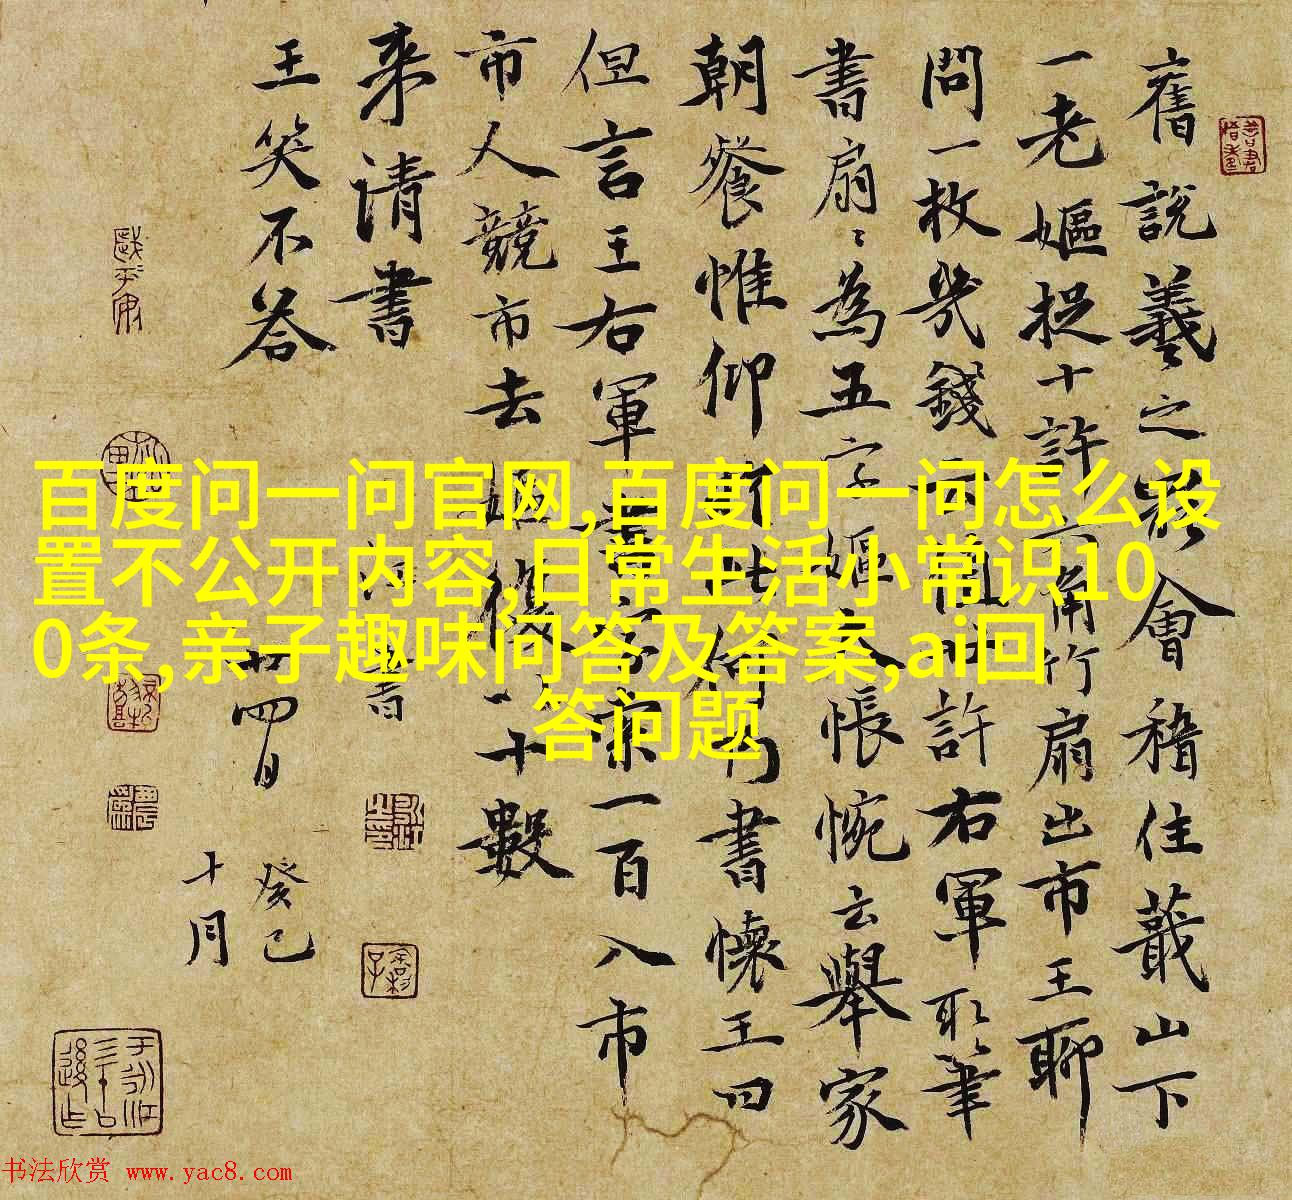 舊說羲之罷會稽住蕺山下
一老嫗捉十許六角竹扇出市王聊
問一枚幾錢云直廿許右軍取筆
書扇扇為五字嫗大悵惋云舉家
朝餐惟仰於此何乃書壞王曰
但言王右軍書字索一百入市
市人競市去嫗復以十數
来請書
王笑不答
廿四日
癸巳
十月
百度问一问官网,百度问一问怎么设
置不公开内容,日常生活小常识10
0条,亲子趣味问答及答案,ai回
答问题
书法欣赏 www.yac8.com